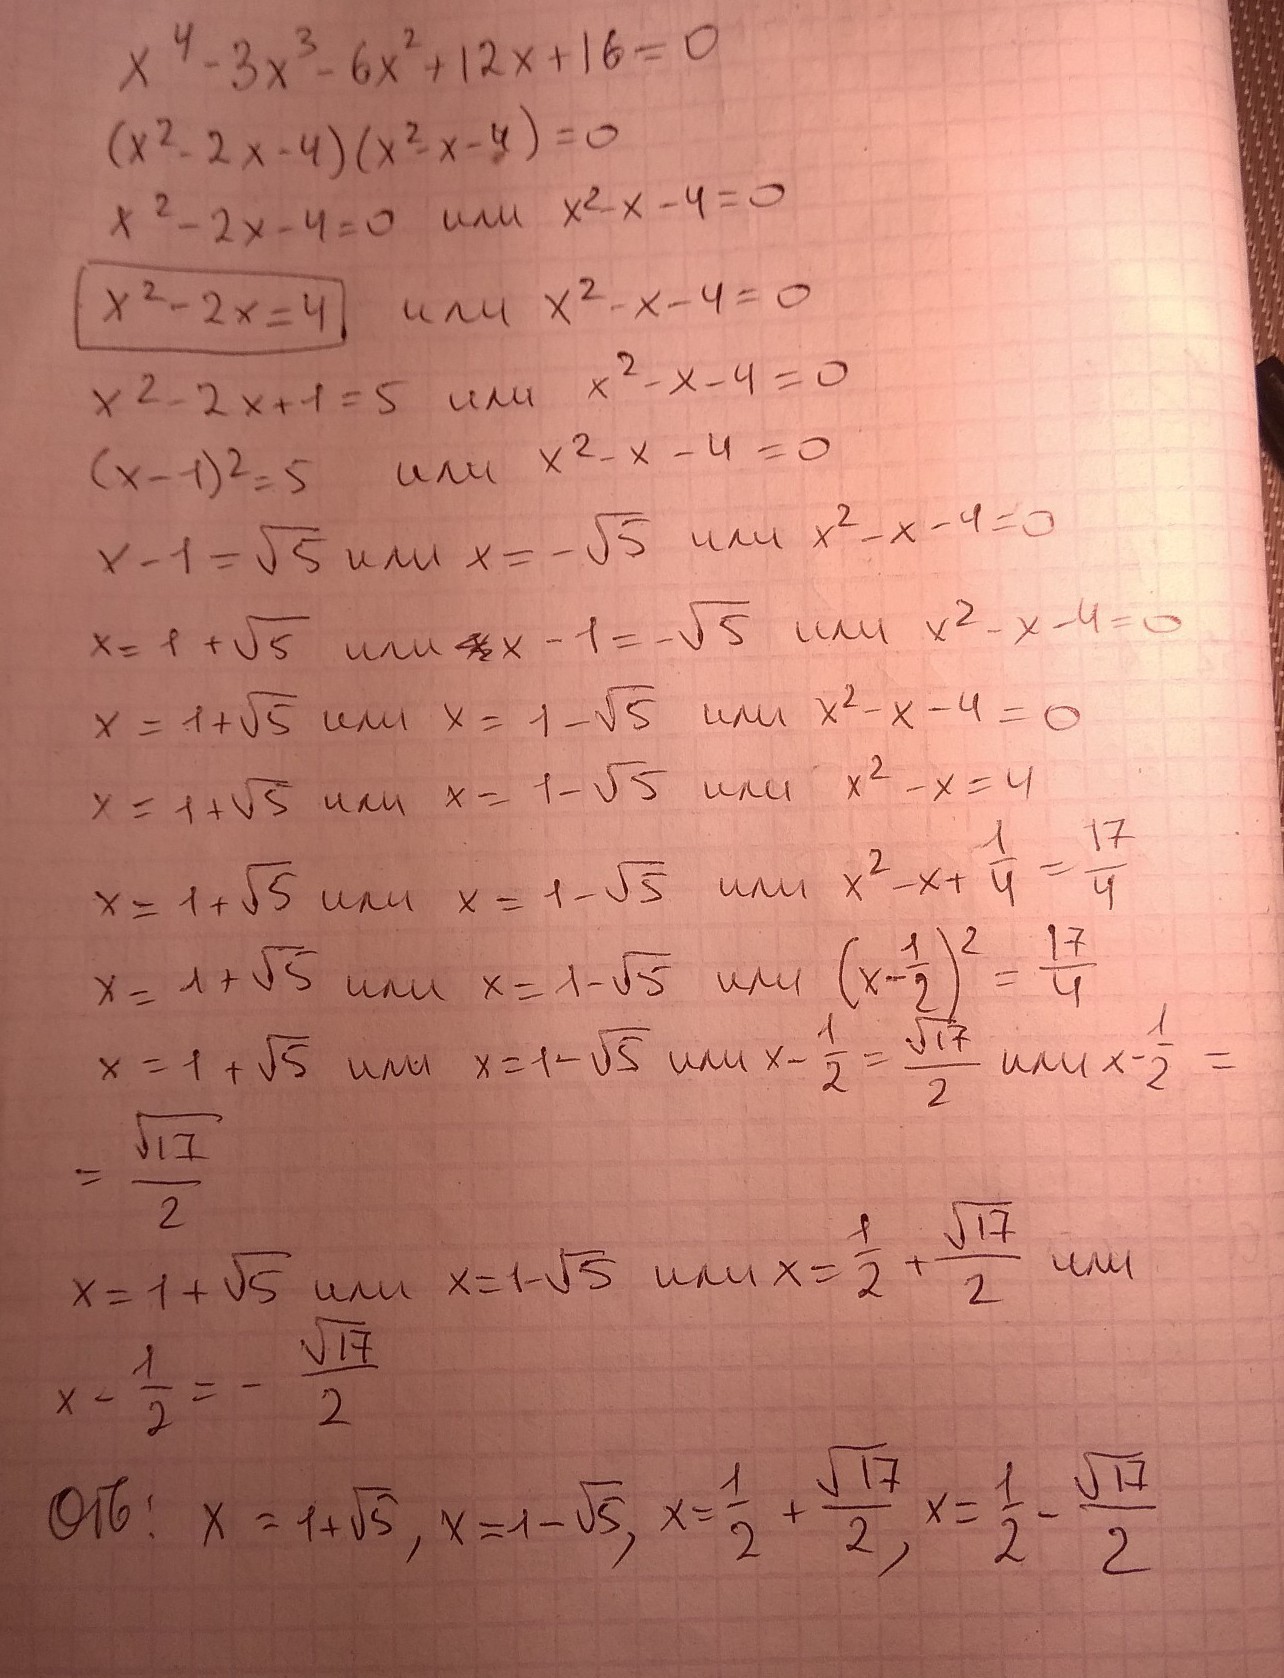 x⁴-3x³-6x²+12x+16=0
(x²-2x-4)(x²-x-4)=0
x²-2x-4=0 или x²-x-4=0
x²-2x=4 или x²-x-4=0
x²-2x+1=5 или x²-x-4=0
(x-1)²=5 или x²-x-4=0
x-1=√5 или x=-√5 или x²-x-4=0
x=1+√5 или x-1=-√5 или x²-x-4=0
x=1+√5 или x=1-√5 или x²-x-4=0
x=1+√5 или x=1-√5 или x²-x=4
x=1+√5 или x=1-√5 или x²-x+1/4=17/4
x=1+√5 или x=1-√5 или (x-1/2)²=17/4
x=1+√5 или x=1-√5 или x-1/2=√17/2 или x-1/2=
=√17/2
x=1+√5 или x=1-√5 или x=1/2+√17/2 или
x-1/2=-√17/2
Отв: x=1+√5, x=1-√5, x=1/2+√17/2, x=1/2-√17/2